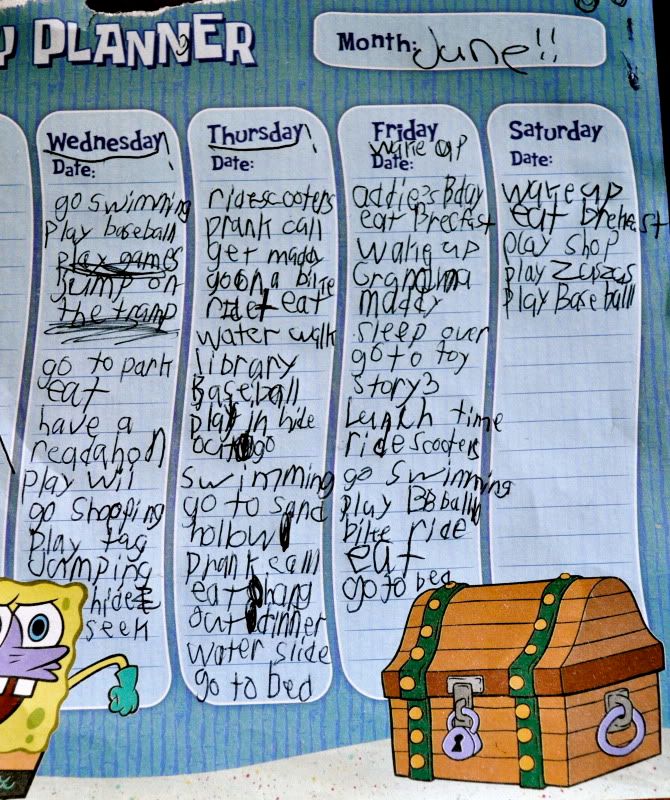 Y PLANNER
Month: June!!
Wednesday!
Date:
go swimming
play baseball
play games
jump on
the tramp
go to park
eat
have a
readahon
play wii
go shopping
play tag
jumping
hide &
seek
Thursday!
Date:
ridescooters
prank call
get maddy
go on a bike
ride eat
water walk
library
Baseball
play in hide
out go
swimming
go to sand
hollow
prank call
eat hang
out dinner
water slide
go to bed
Friday
wake up
Date:
addie's Bday
eat Brecfast
wake up
Grandma
maddy
sleep over
go to toy
story3
Lunch time
ride scooters
go swimming
play BBball
bike ride
eat
go to bed
Saturday
Date:
wake up
eat brekest
play shop
play zuszus
play Base ball